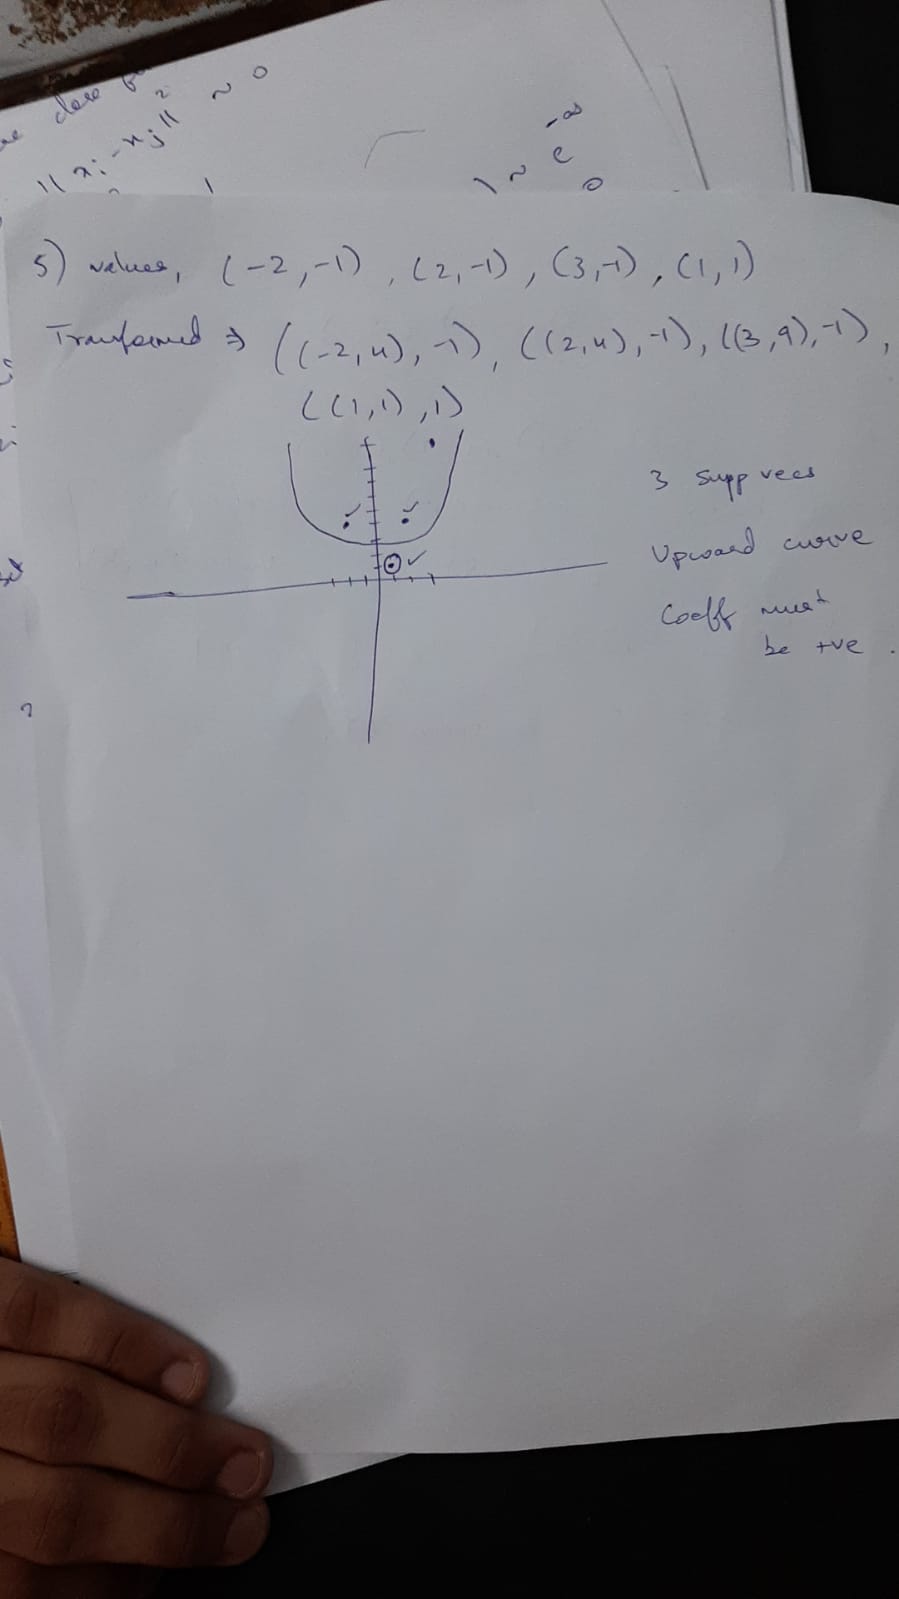 dese
||xi-xj||² ~ 0
1 ~ e^-∞
0
5) values, (-2,-1), (2,-1), (3,-1), (1,1)
Transformed ⇒ ((-2,4), -1), ((2,4),-1), ((3,9),-1),
((1,1),1)
3 Supp vecs
Upward curve
Coeff must
be +ve .
?